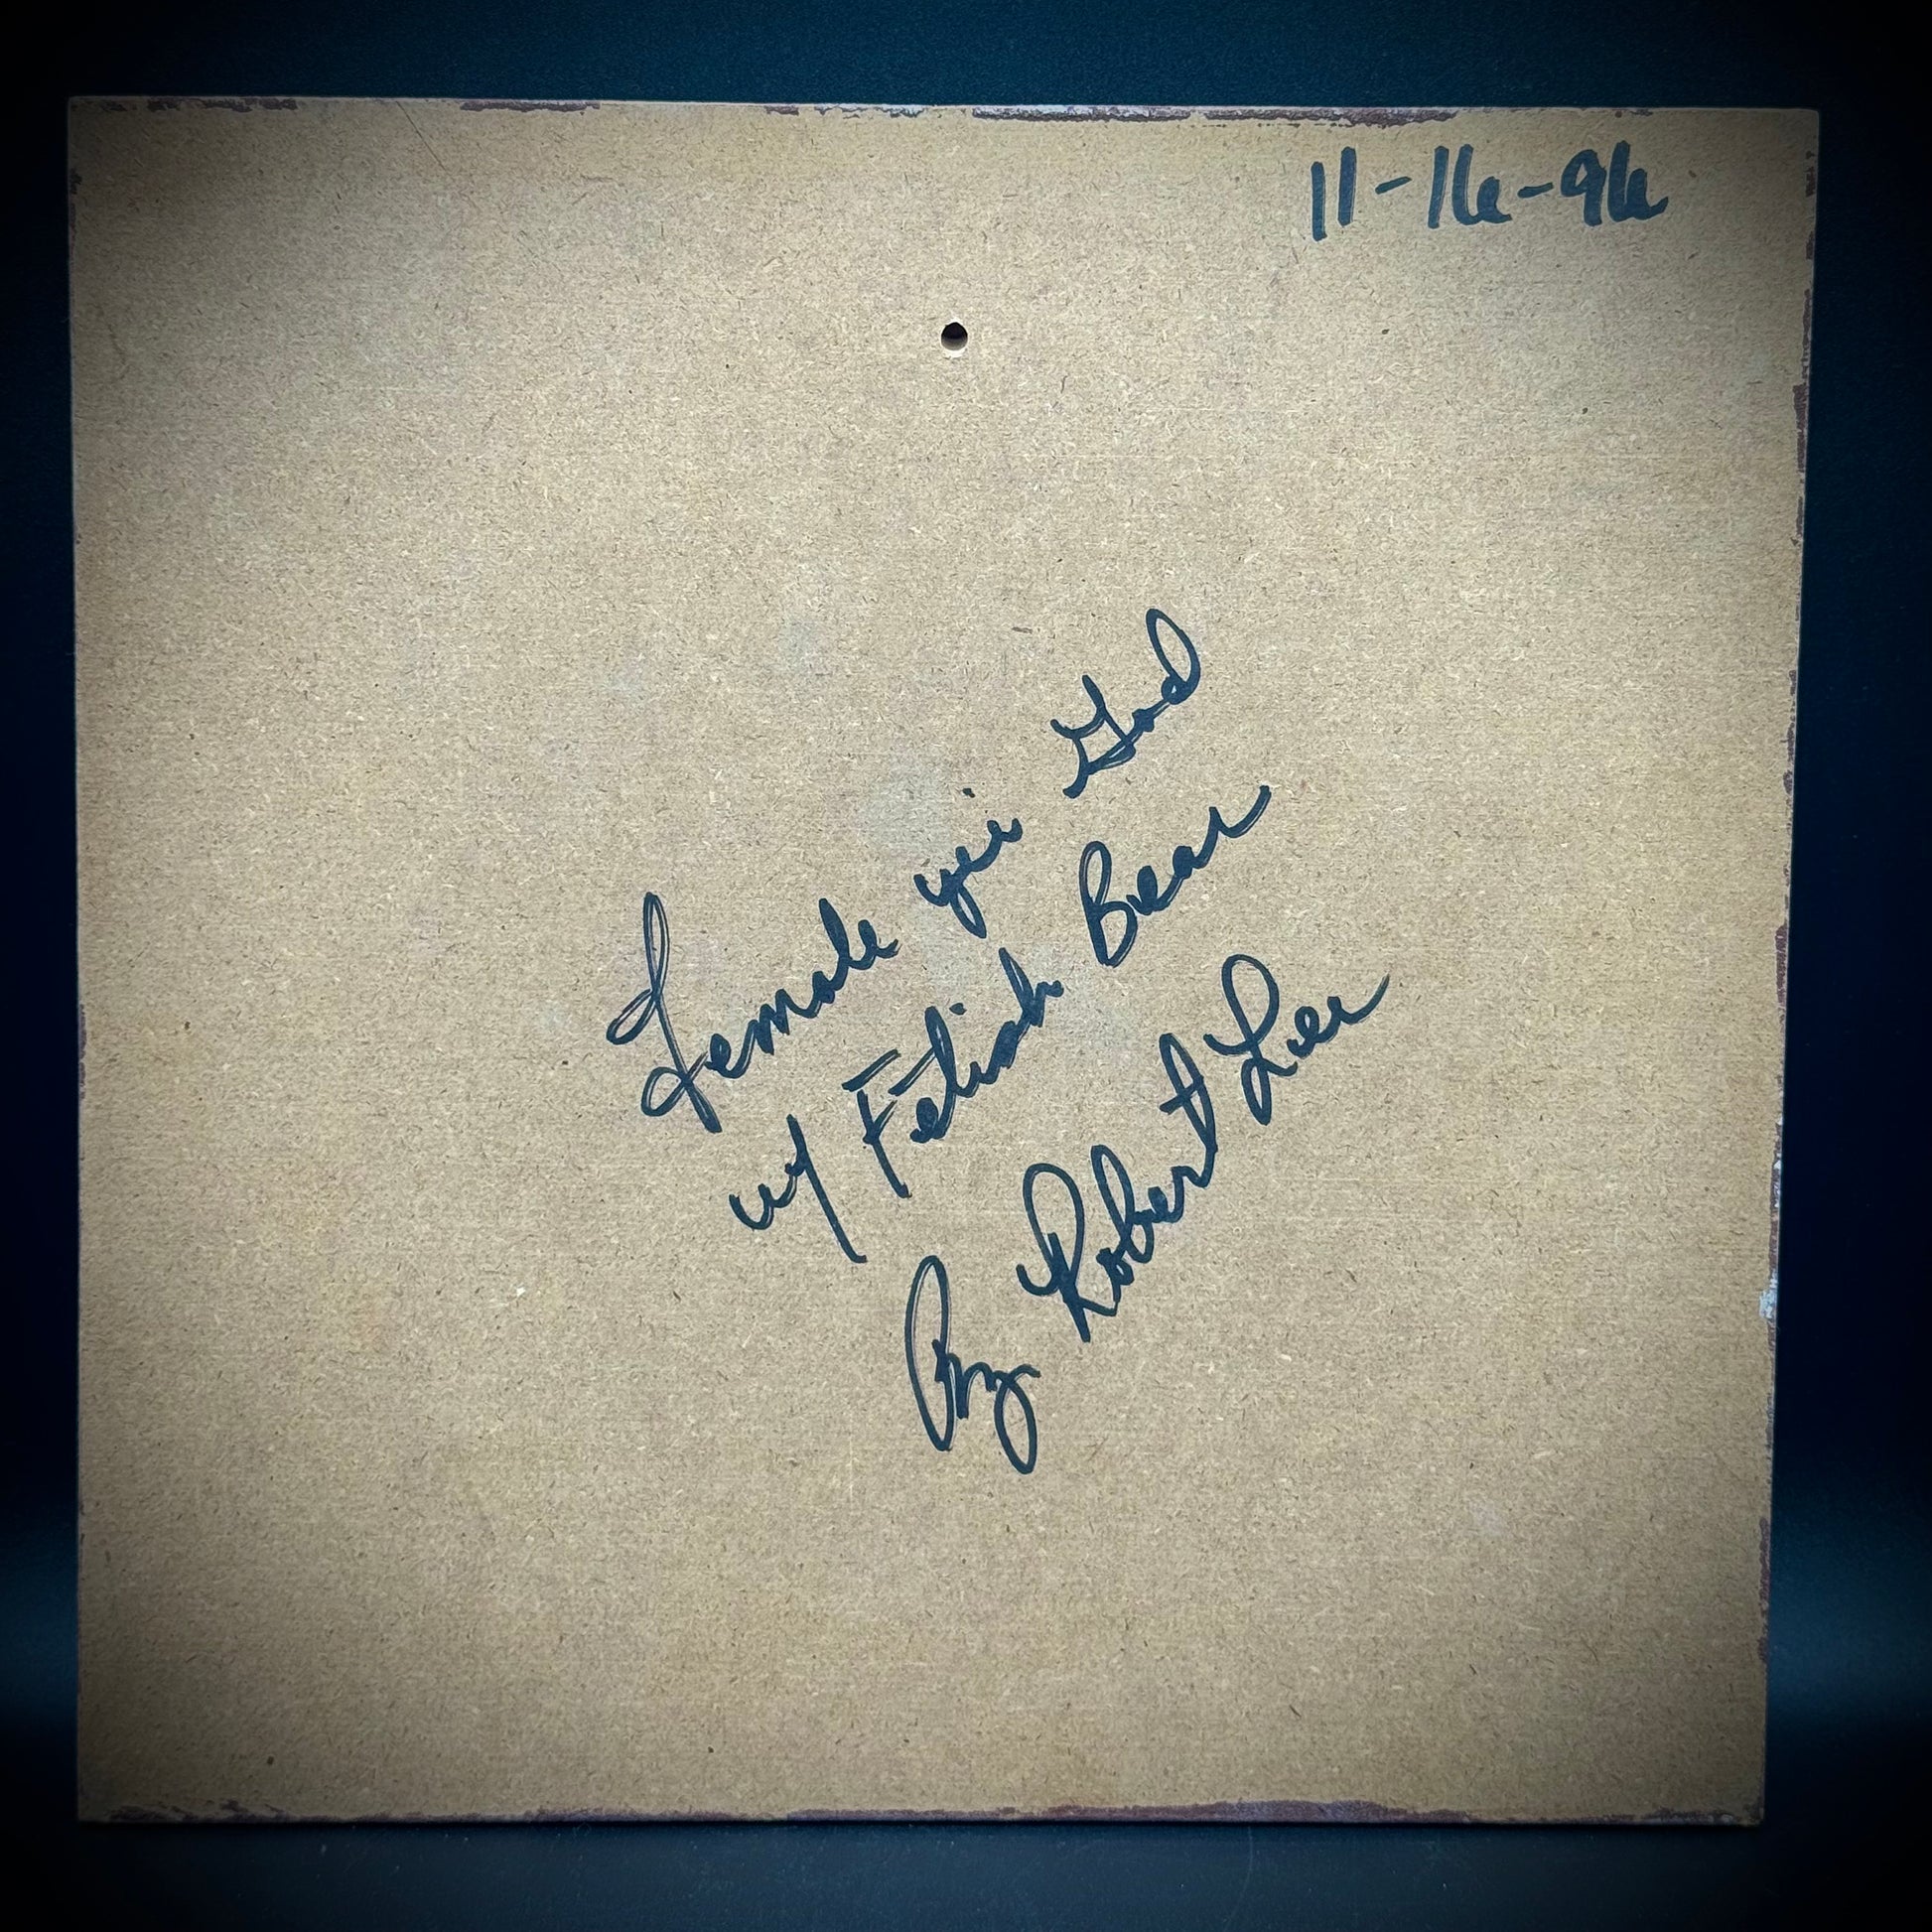 11-16-96
Female yei God
w/ Fetish Bear
By Robert Lee